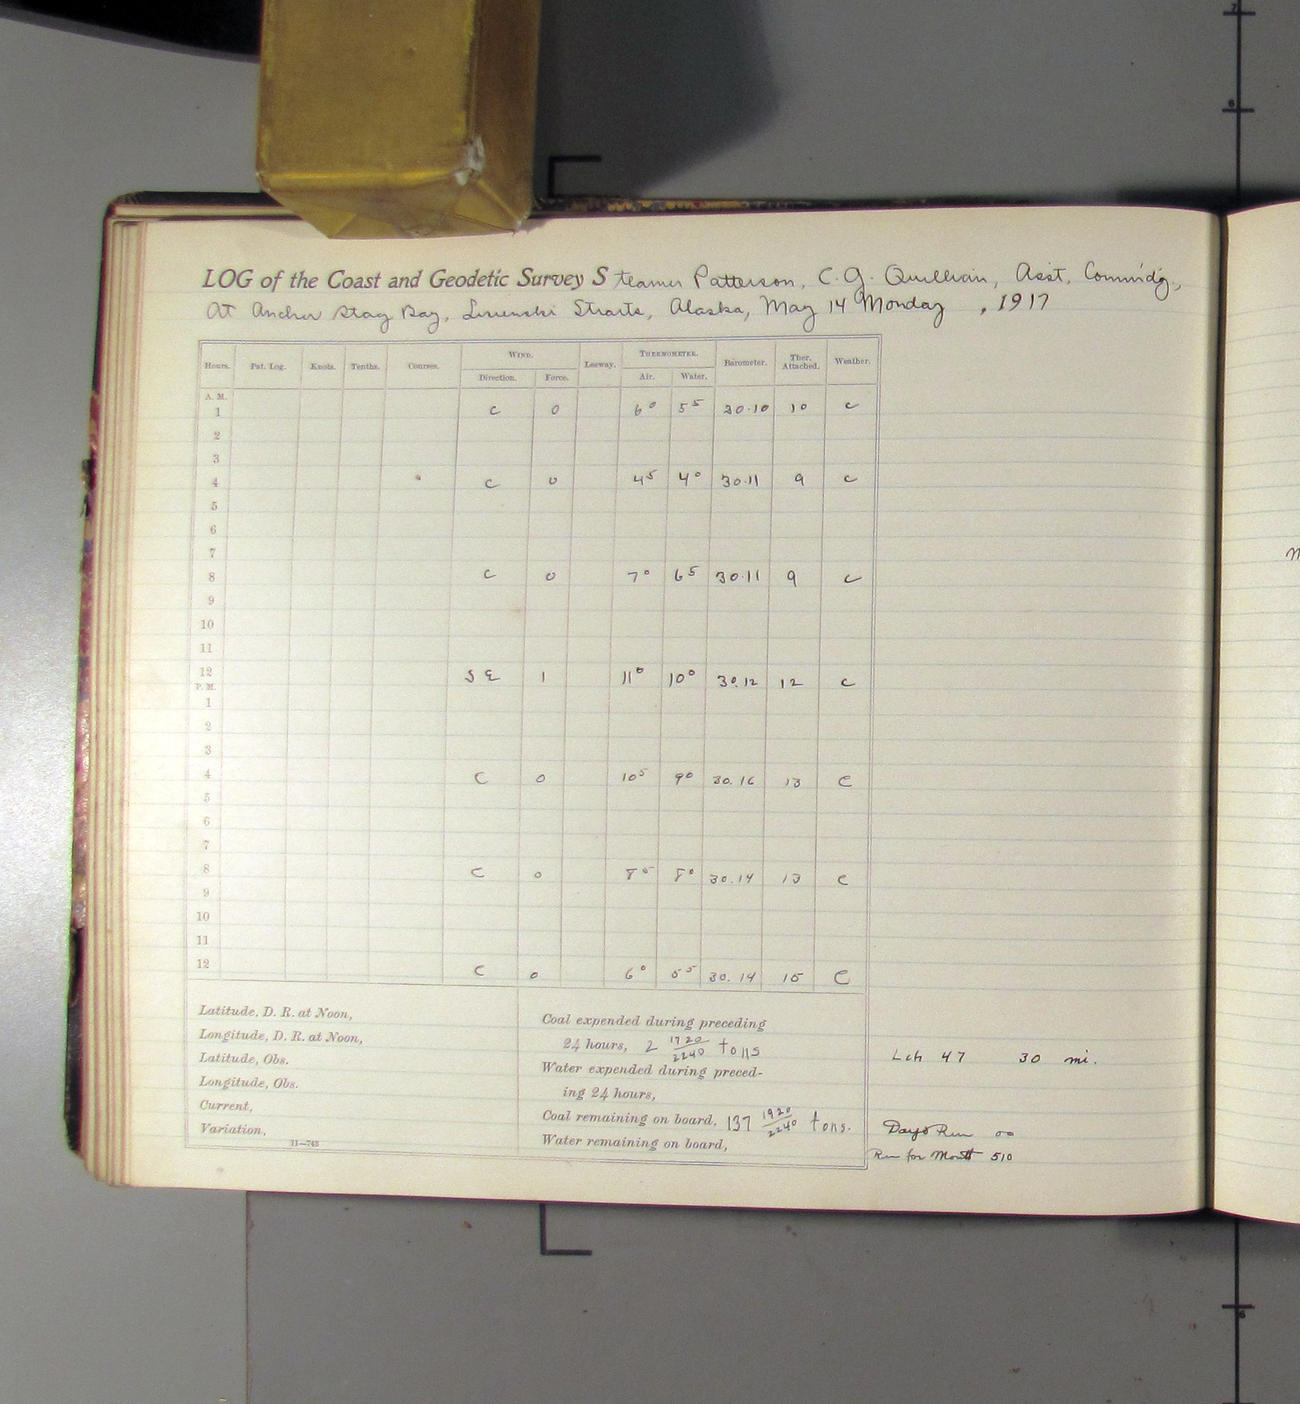 LOG of the Coast and Geodetic Survey Steamer Patterson, C. G. Quillian, Asst. Commd'g,
At Anchor Stag Bay, Lisienski Straits, Alaska, May 14 Monday, 1917
WIND. THERMOMETER.
Hours. Pat. Log. Knots. Tenths. Courses. Direction. Force. Leeway. Air. Water. Barometer. Ther. Attached. Weather.
A. M.
1 C 0 6⁰ 5⁵ 30.10 10 C
2
3
4 C 0 4⁵ 4⁰ 30.11 9 C
5
6
7
8 C 0 7⁰ 6⁵ 30.11 9 C
9
10
11
12 SE 1 11⁰ 10⁰ 30.12 12 C
P. M.
1
2
3
4 C 0 10⁵ 9⁰ 30.16 13 C
5
6
7
8 C 0 8⁵ 8⁰ 30.14 13 C
9
10
11
12 C 0 6⁰ 5⁵ 30.14 15 C
Latitude, D. R. at Noon,
Longitude, D. R. at Noon,
Latitude, Obs.
Longitude, Obs.
Current,
Variation,
11—743
Coal expended during preceding
24 hours, 2 1720/2240 tons
Water expended during preced-
ing 24 hours,
Coal remaining on board, 137 1920/2240 tons.
Water remaining on board,
Lch 47 30 mi.
Days Run 00
Run for Month 510
7
6
6